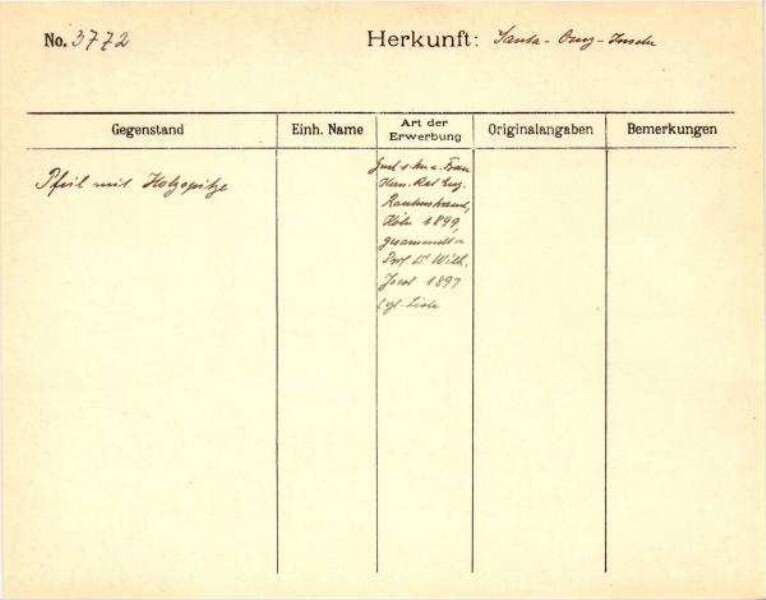 No. 3772
Herkunft: Santa-Cruz-Inseln
Gegenstand
Einh. Name
Art der Erwerbung
Originalangaben
Bemerkungen
Pfeil mit Holzspitze
Frau
Kom. Rat Eug.
Rautenstrauch,
Köln 1899,
gesammelt v.
Prof. Dr. Wilh.
Joest 1897
vgl. Liste